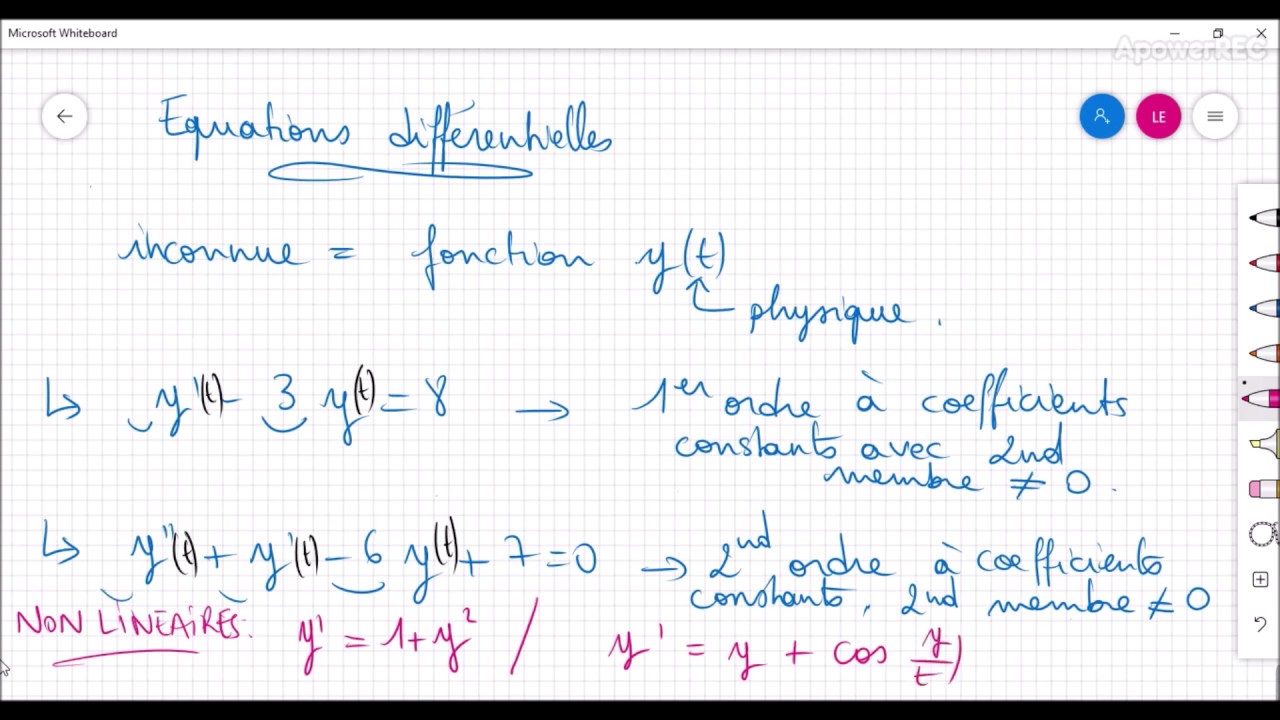 Microsoft Whiteboard
ApowerREC
Equations différentielles
LE
inconnue = fonction y(t)
physique.
↳ y'(t) - 3 y(t) = 8 → 1er ordre à coefficients
constants avec 2nd
membre ≠ 0.
↳ y''(t) + y'(t) - 6 y(t) + 7 = 0 → 2nd ordre à coefficients
constants, 2nd membre ≠ 0
NON LINEAIRES: y' = 1 + y² / y' = y + cos y/t)